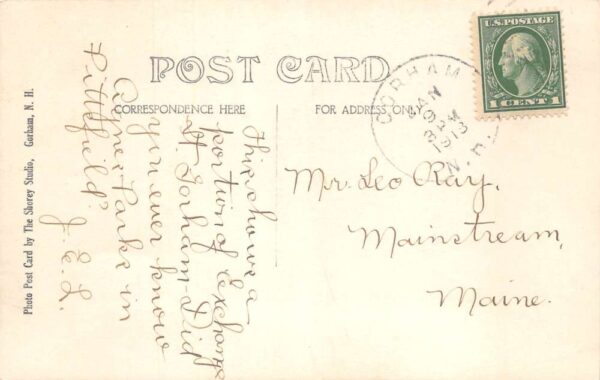 POST CARD
CORRESPONDENCE HERE
FOR ADDRESS ONLY
U.S. POSTAGE
1 CENT 1
GORHAM
JAN
9
3 PM
1913
N.H.
Mr. Leo Ray,
Mainstream,
Maine.
This shows a
portion of Exchange
St. Gorham - Did
you ever know
Abner Parks in
Pittsfield
J.E.L.
Photo Post Card by The Shorey Studio, Gorham, N. H.